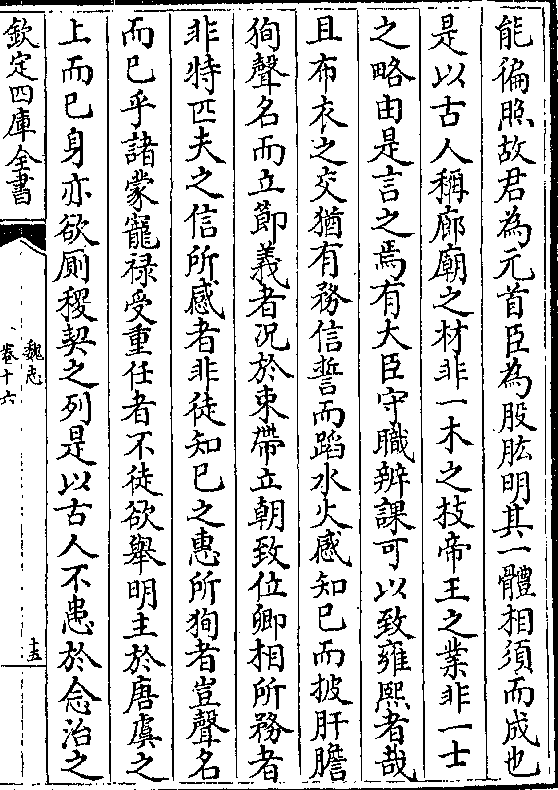 能徧照故君為元首臣為股肱明其一體相須而成也
是以古人稱廊廟之材非一木之技帝王之業非一士
之略由是言之焉有大臣守職辨課可以致雍熙者哉
且布衣之交猶有務信誓而蹈水火感知已而披肝膽
狥聲名而立節義者况於束帶立朝致位卿相所務者
非特匹夫之信所感者非徒知已之惠所狥者豈聲名
而已乎諸蒙寵禄受重任者不徒欲舉明主於唐虞之
上而已身亦欲厠稷契之列是以古人不患於念治之
欽定四庫全書
魏志
卷十六
十五